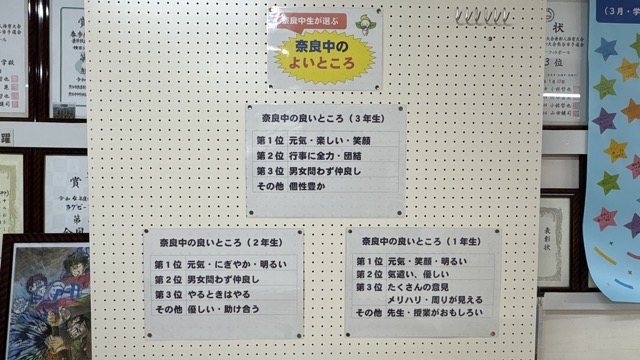 奈良中生が選ぶ
奈良中の
よいところ
奈良中の良いところ（３年生）
第１位 元気・楽しい・笑顔
第２位 行事に全力・団結
第３位 男女問わず仲良し
その他 個性豊か
奈良中の良いところ（２年生）
第１位 元気・にぎやか・明るい
第２位 男女問わず仲良し
第３位 やるときはやる
その他 優しい・助け合う
奈良中の良いところ（１年生）
第１位 元気・笑顔・明るい
第２位 気遣い、優しい
第３位 たくさんの意見
メリハリ・周りが見える
その他 先生・授業がおもしろい
躍
賞
状
３位
表彰状
（３月・学